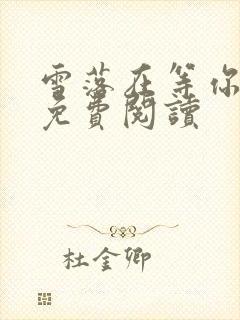 雪落在等你
免費閱讀
杜金卿